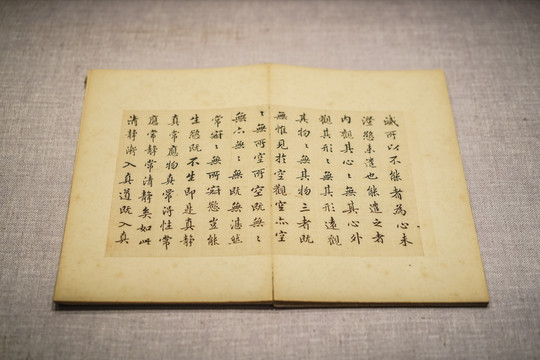 滅所以不能者為心未
澄慾未遣也能遣之者
内觀其心〻無其心外
觀其形〻無其形遠觀
其物〻無其物三者既
無惟見於空觀空亦空
〻無所空所空既無〻
無亦無〻無既無湛然
常寂〻無所寂慾豈能
生慾既不生即是真靜
真常應物真常得性常
應常靜常清靜矣如此
清靜漸入真道既入真